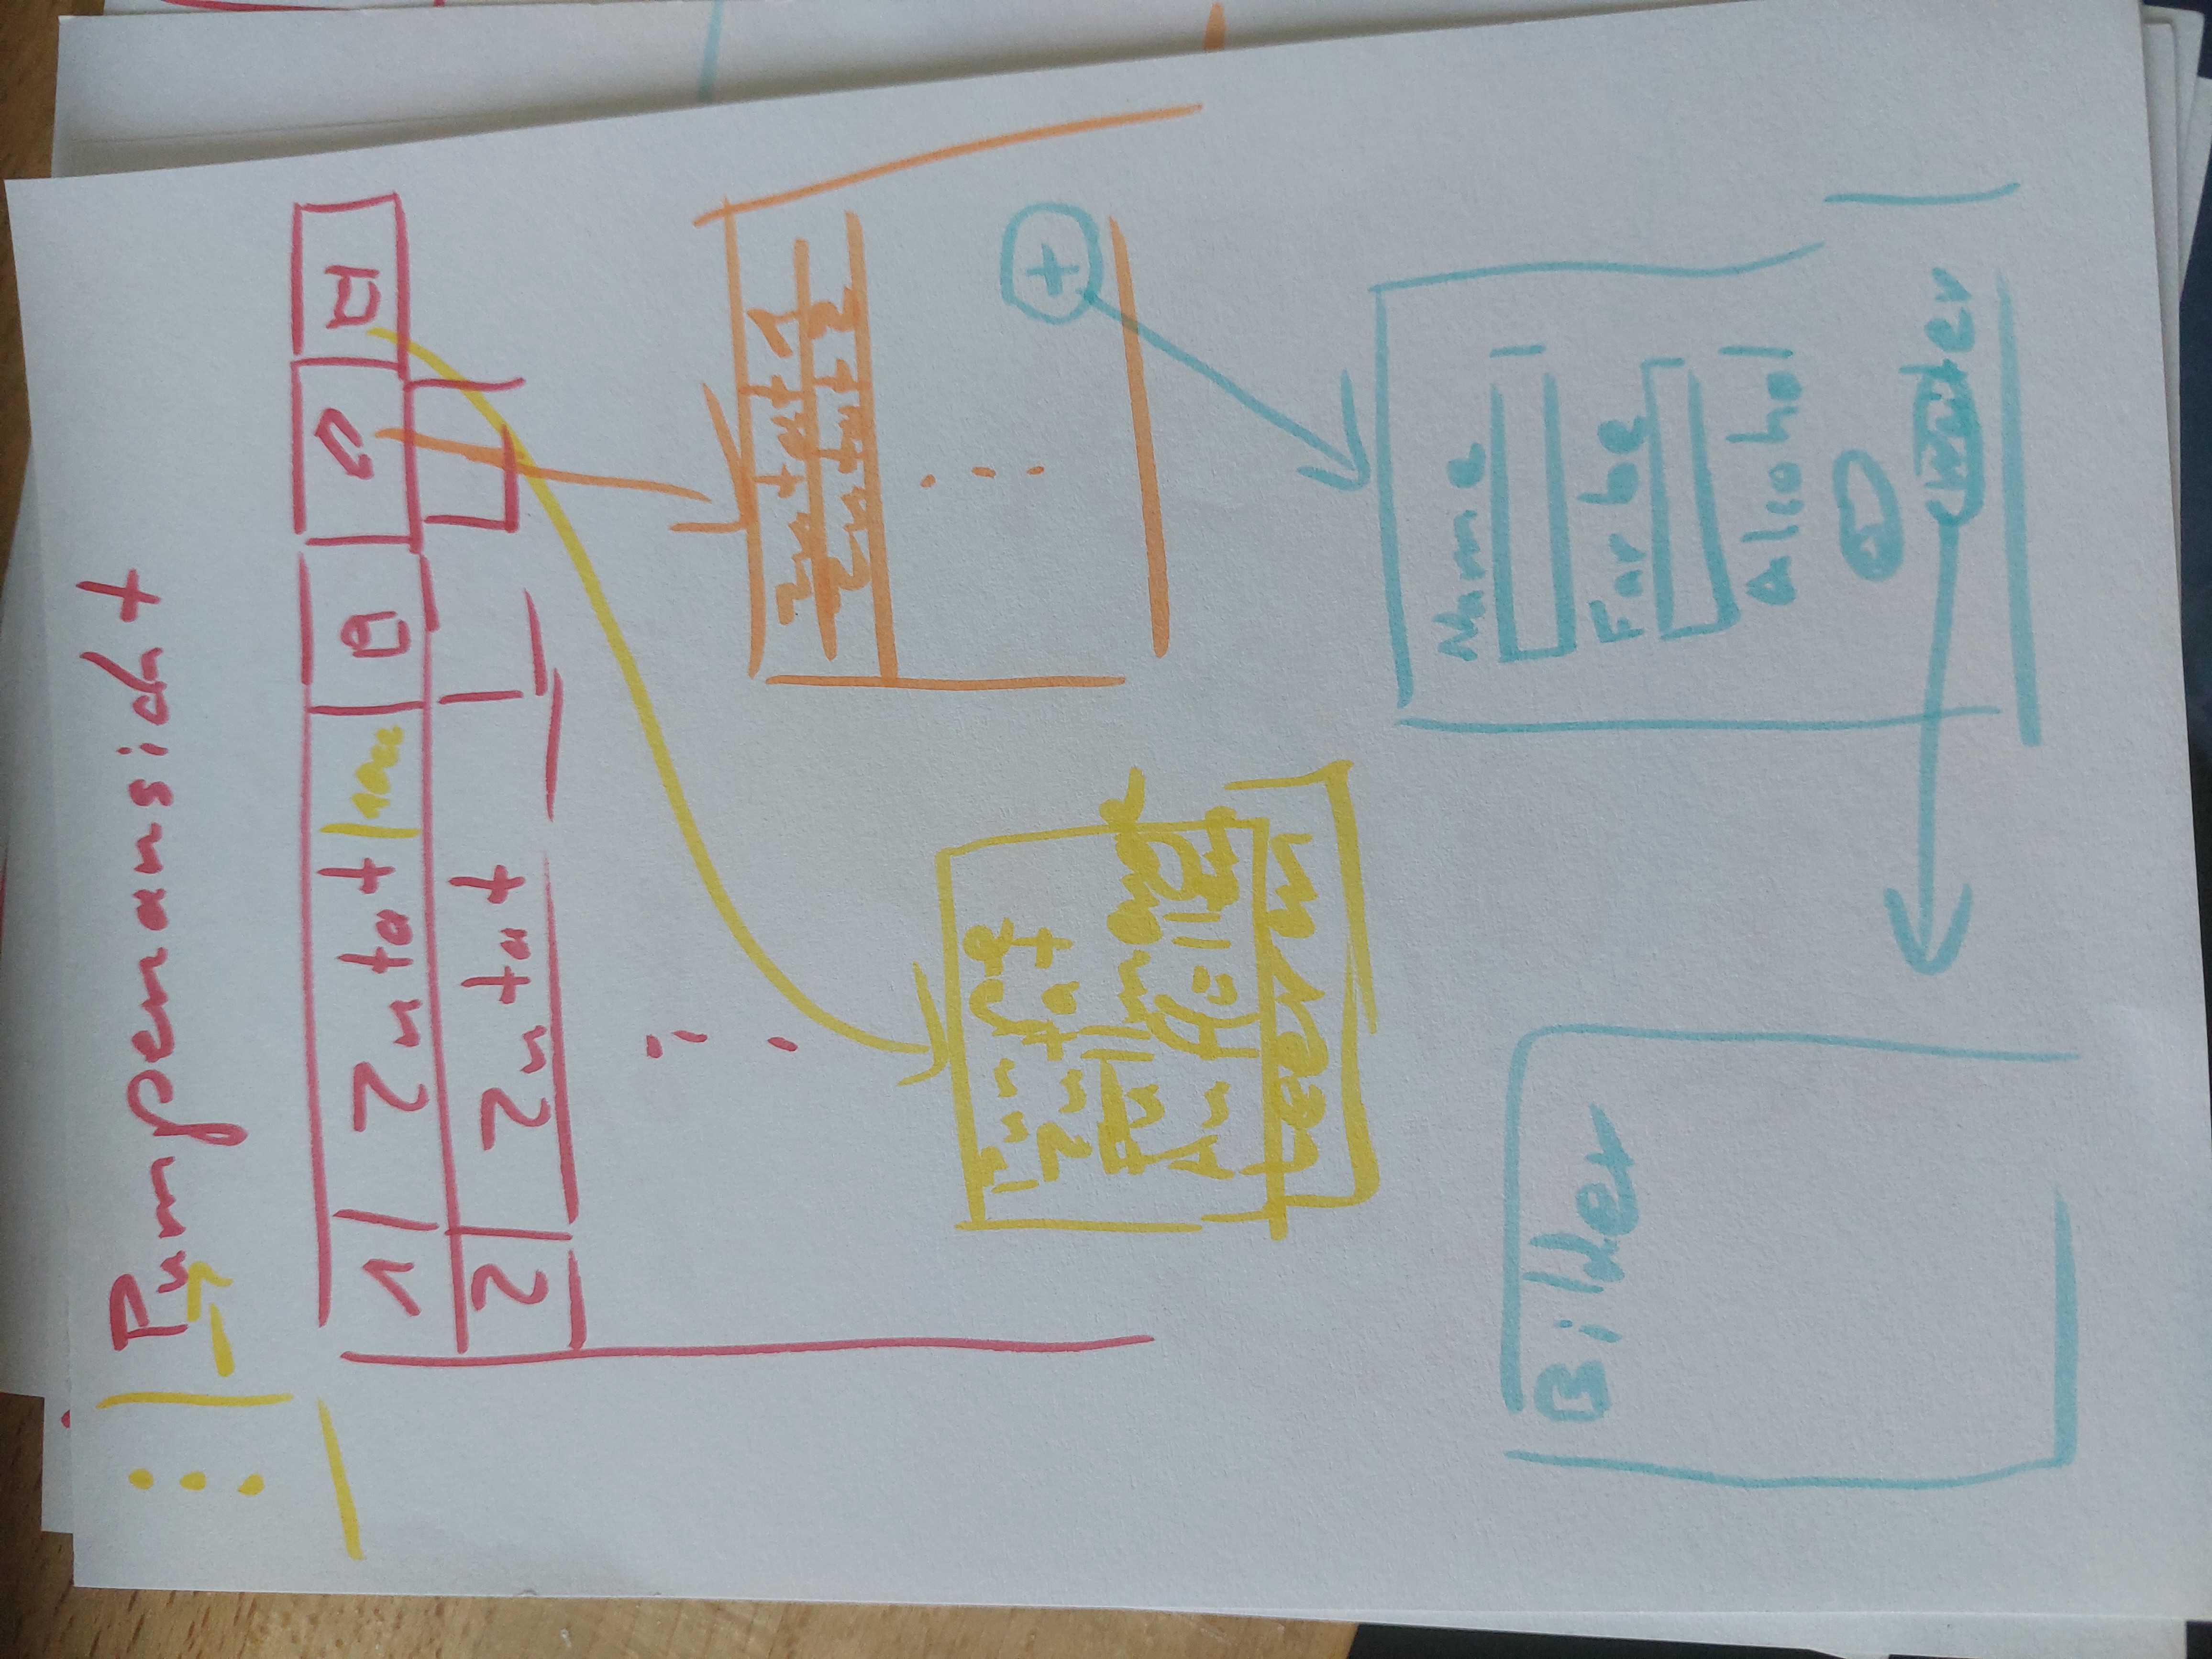 Pumpenansicht
1 Zutat
2 Zutat
Zutat 1
Zutat 2
Pumpe
Zutat
Füllmenge
Auffüllen
Leeren
+
Name
Farbe
Alcohol
Weiter
Bilder